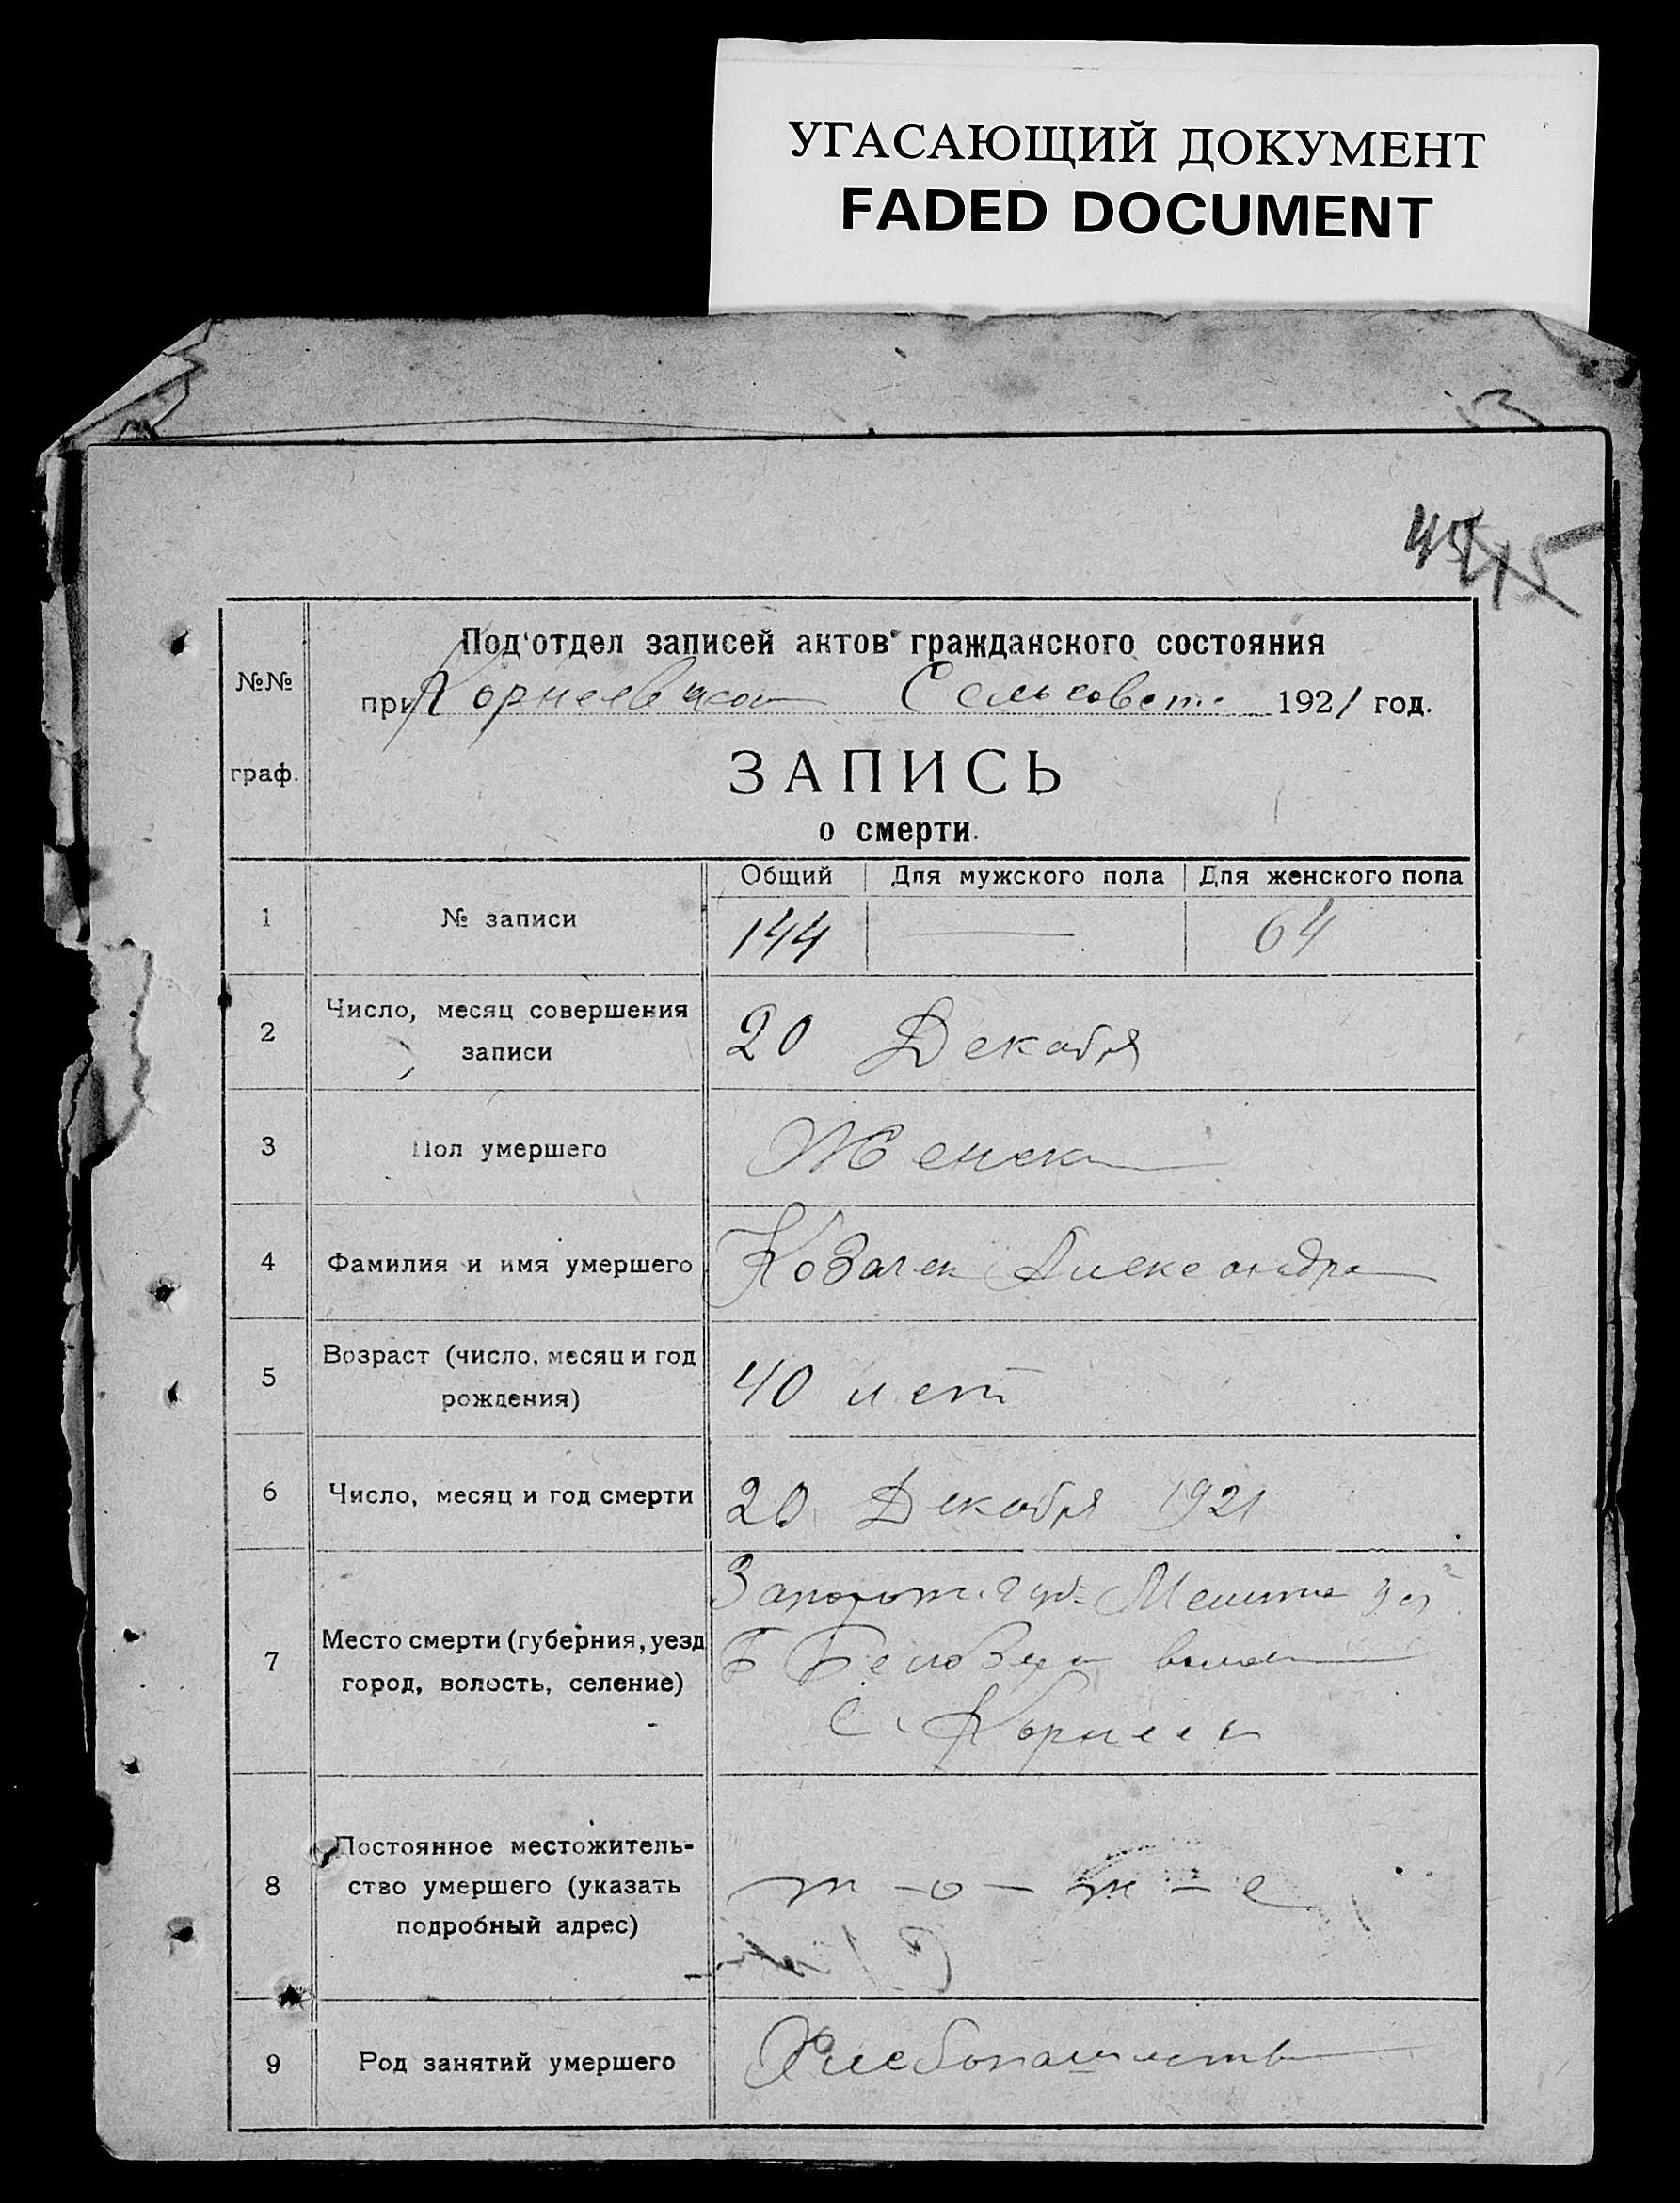 УГАСАЮЩИЙ ДОКУМЕНТ
FADED DOCUMENT
Подотдел записей актов гражданского состояния
при Корнеевском Сельсовете 1921 год.
№№
граф.
ЗАПИСЬ
о смерти.
Общий Для мужского пола Для женского пола
1 № записи 144 — 64
2 Число, месяц совершения
записи
20 Декабря
3 Пол умершего Женск
4 Фамилия и имя умершего Козачек Александра
5 Возраст (число, месяц и год
рождения)
40 лет
6 Число, месяц и год смерти 20 Декабря 1921
7 Место смерти (губерния, уезд
город, волость, селение)
Запорож. губ. Мелит
Б Белозер волост
С. Корнеев
8 Постоянное местожитель-
ство умершего (указать
подробный адрес)
т-о-ж-е
9 Род занятий умершего Хлебопашеств